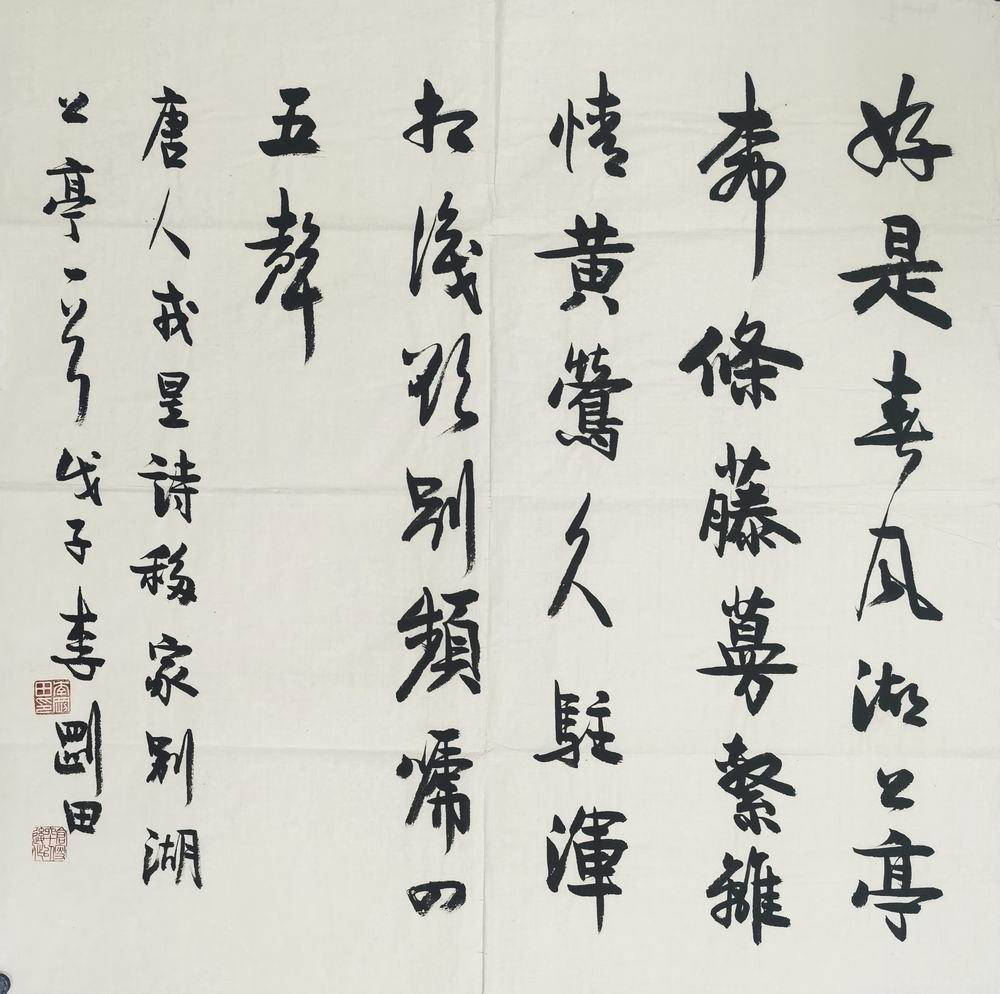 好是春風湖上亭
柳條藤蔓繫離
情黃鶯久駐渾
相識欲別頻嗁四
五聲
唐人戎昱詩移家別湖
上亭一首戊子李剛田
李剛田印